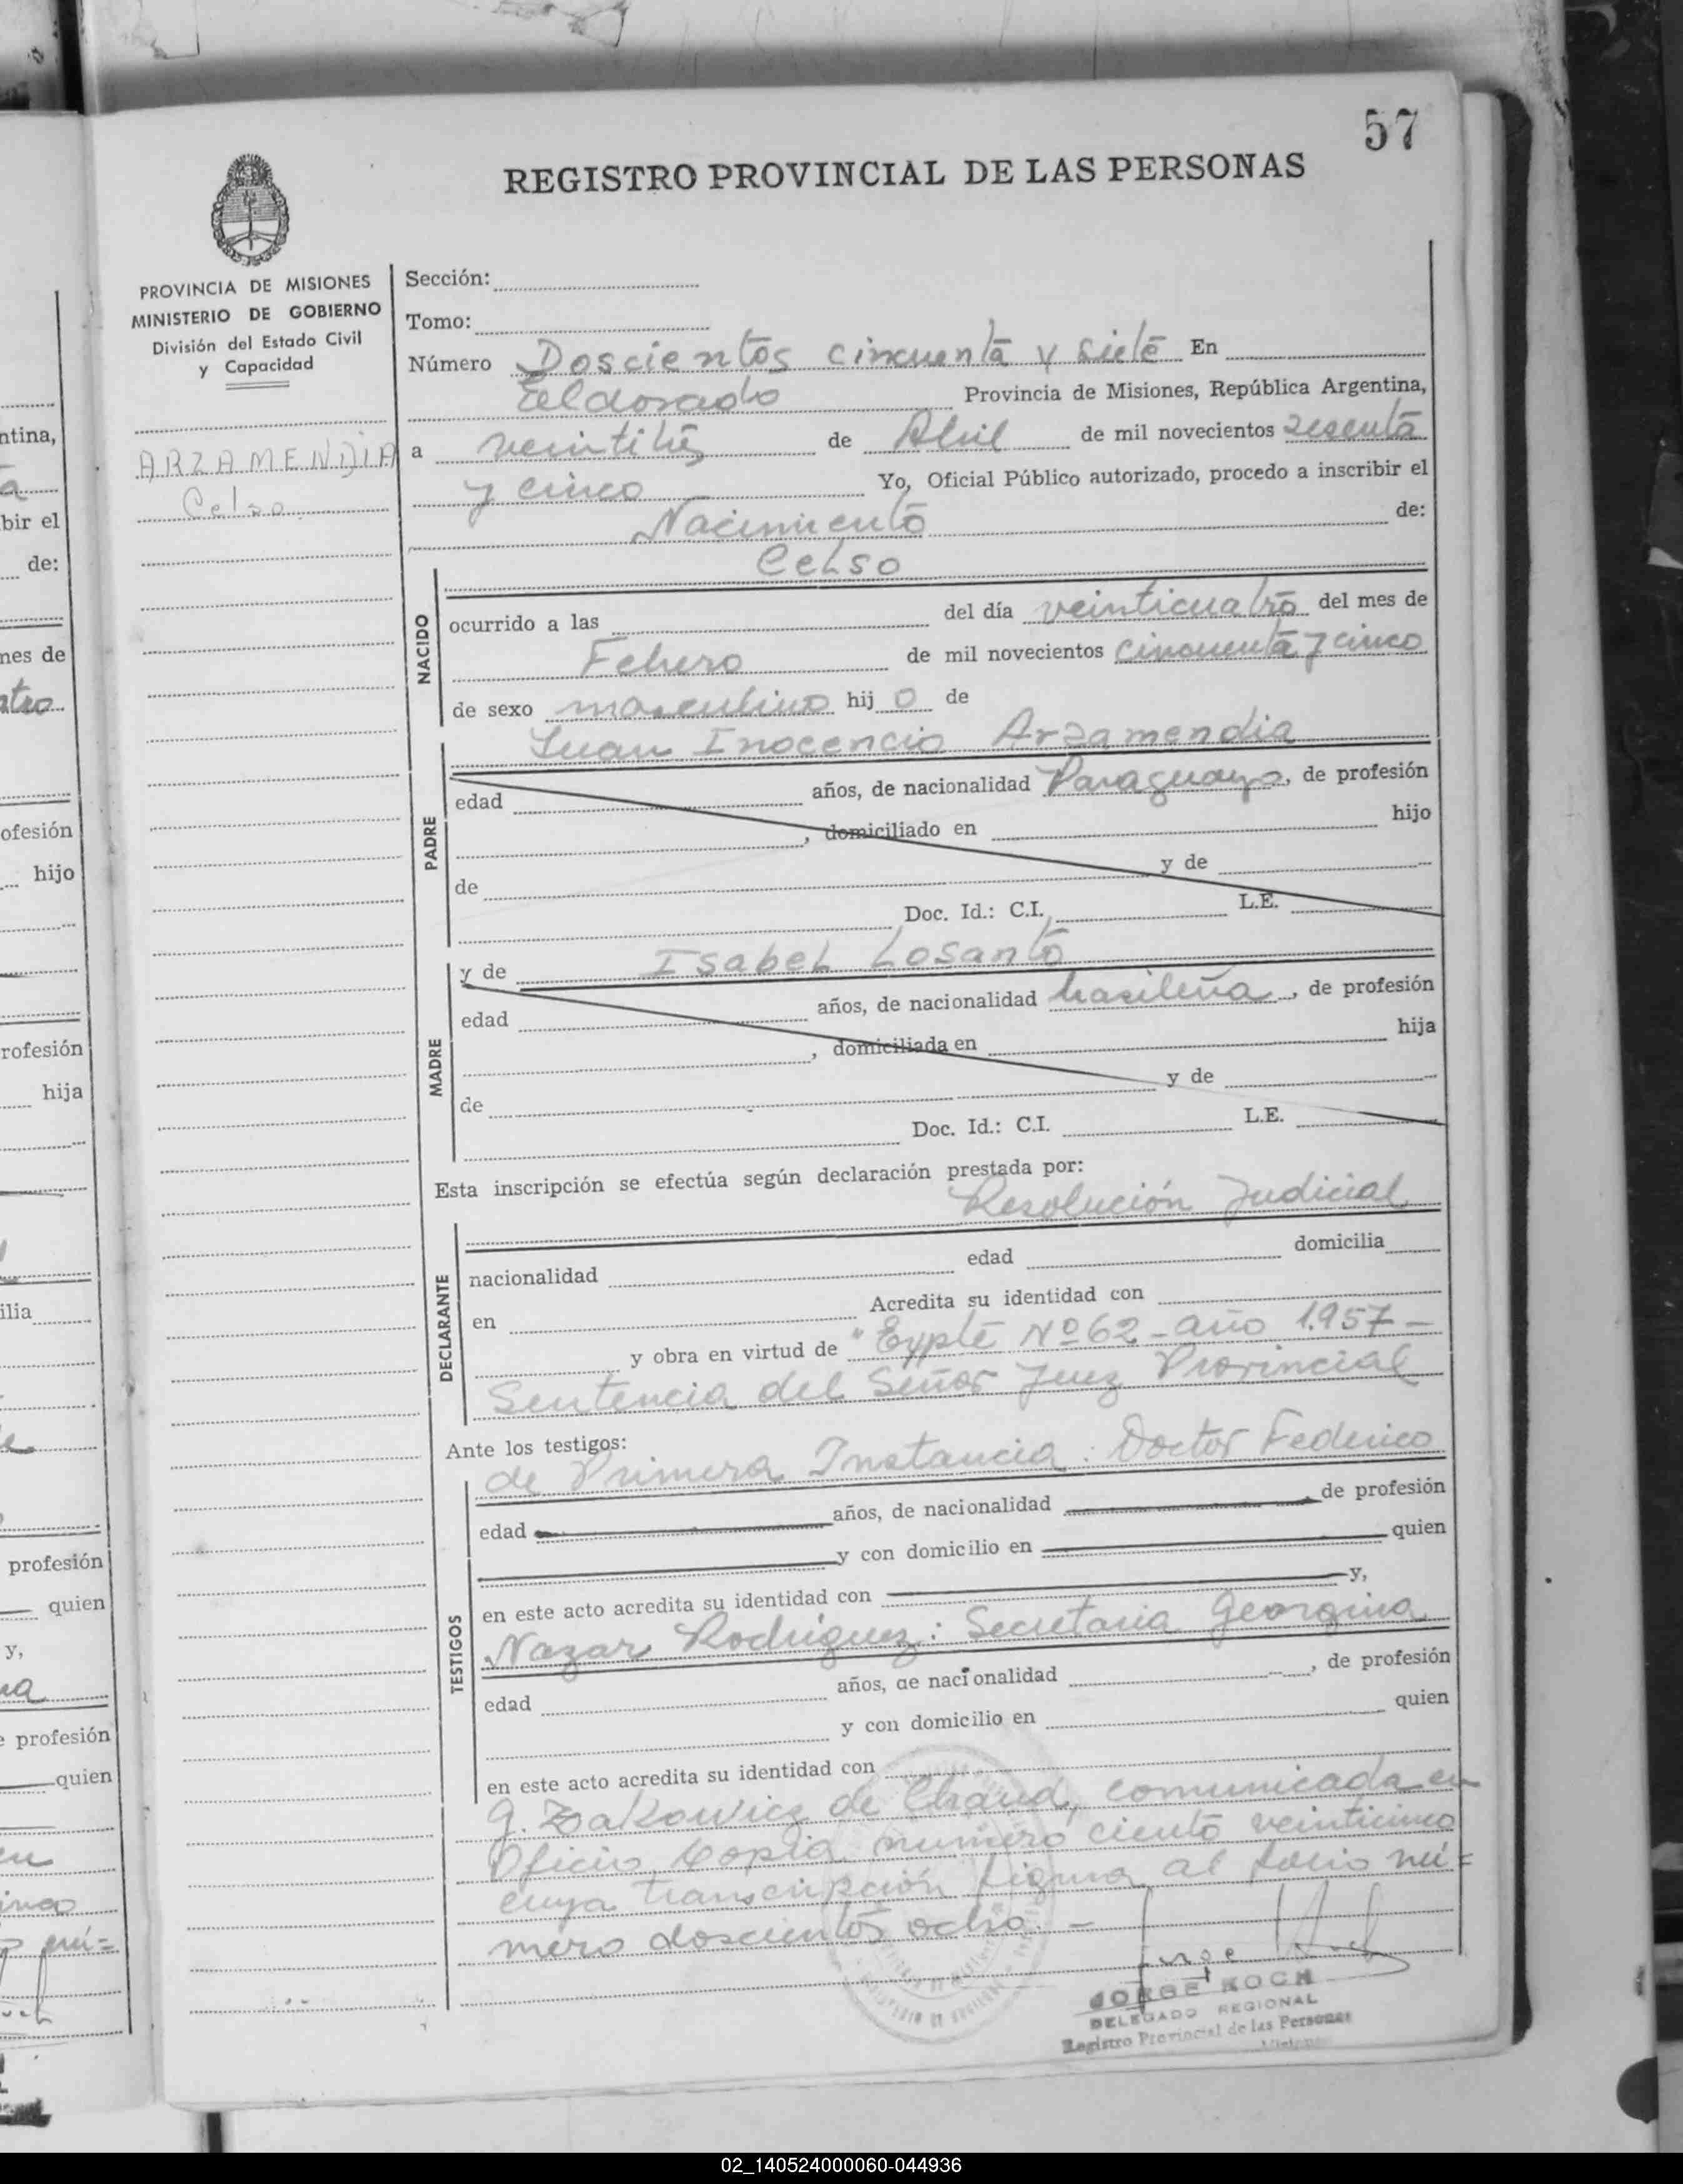 57
REGISTRO PROVINCIAL DE LAS PERSONAS
PROVINCIA DE MISIONES
MINISTERIO DE GOBIERNO
División del Estado Civil
y Capacidad
ARZAMENDIA
Celso
Sección:
Tomo:
Número Doscientos cincuenta y siete En
Eldorado Provincia de Misiones, República Argentina,
a veintitrés de Abril de mil novecientos sesenta
y cinco Yo, Oficial Público autorizado, procedo a inscribir el
Nacimiento de:
Celso
NACIDO
ocurrido a las del día veinticuatro del mes de
Febrero de mil novecientos cincuenta y cinco
de sexo masculino hij o de
Juan Inocencio Arzamendia
PADRE
edad años, de nacionalidad Paraguayo, de profesión
, domiciliado en hijo
de y de
Doc. Id.: C.I. L.E.
MADRE
y de Isabel Losanto
edad años, de nacionalidad brasileña, de profesión
, domiciliada en hija
de y de
Doc. Id.: C.I. L.E.
Esta inscripción se efectúa según declaración prestada por:
Resolución Judicial
DECLARANTE
nacionalidad edad domicilia
en Acredita su identidad con
y obra en virtud de "Expte Nº 62 - año 1.957 -
Sentencia del Señor Juez Provincial
Ante los testigos:
de Primera Instancia: Doctor Federico
TESTIGOS
edad años, de nacionalidad de profesión
y con domicilio en quien
en este acto acredita su identidad con y,
Nazar Rodríguez: Secretaria Georgina
edad años, de nacionalidad , de profesión
y con domicilio en quien
en este acto acredita su identidad con
G. Zakowicz de comunicada en
Oficio Copia número ciento veinticinco
cuya transcripción figura al folio nú=
mero doscientos ocho. -
JORGE KOCH
DELEGADO REGIONAL
Registro Provincial de las Personas
02_140524000060-044936